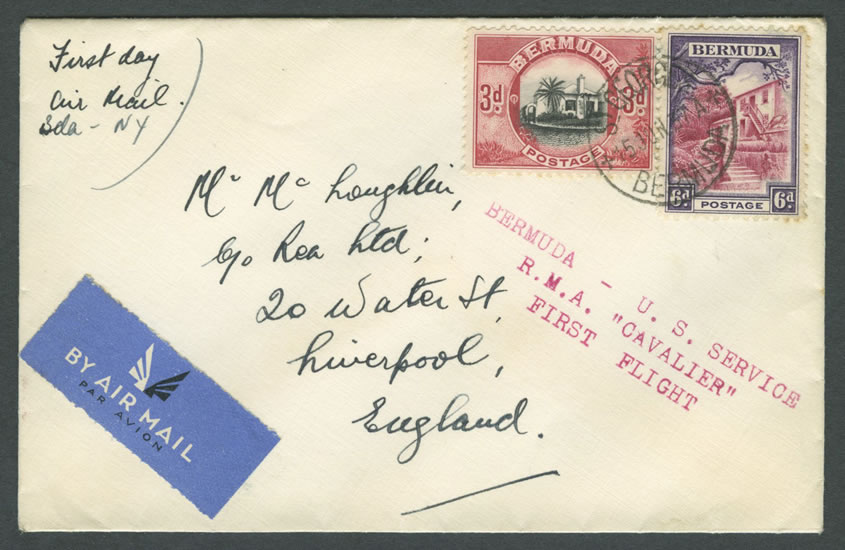 First day
Air Mail.
Bda - NY
BERMUDA
3d. 3d.
POSTAGE
BERMUDA
6d 6d
POSTAGE
BERMUDA
Mr Mc Loughlin,
c/o Rea Ltd;
20 Water St,
Liverpool,
England.
BERMUDA - U. S. SERVICE
R.M.A. "CAVALIER"
FIRST FLIGHT
BY AIR MAIL
PAR AVION